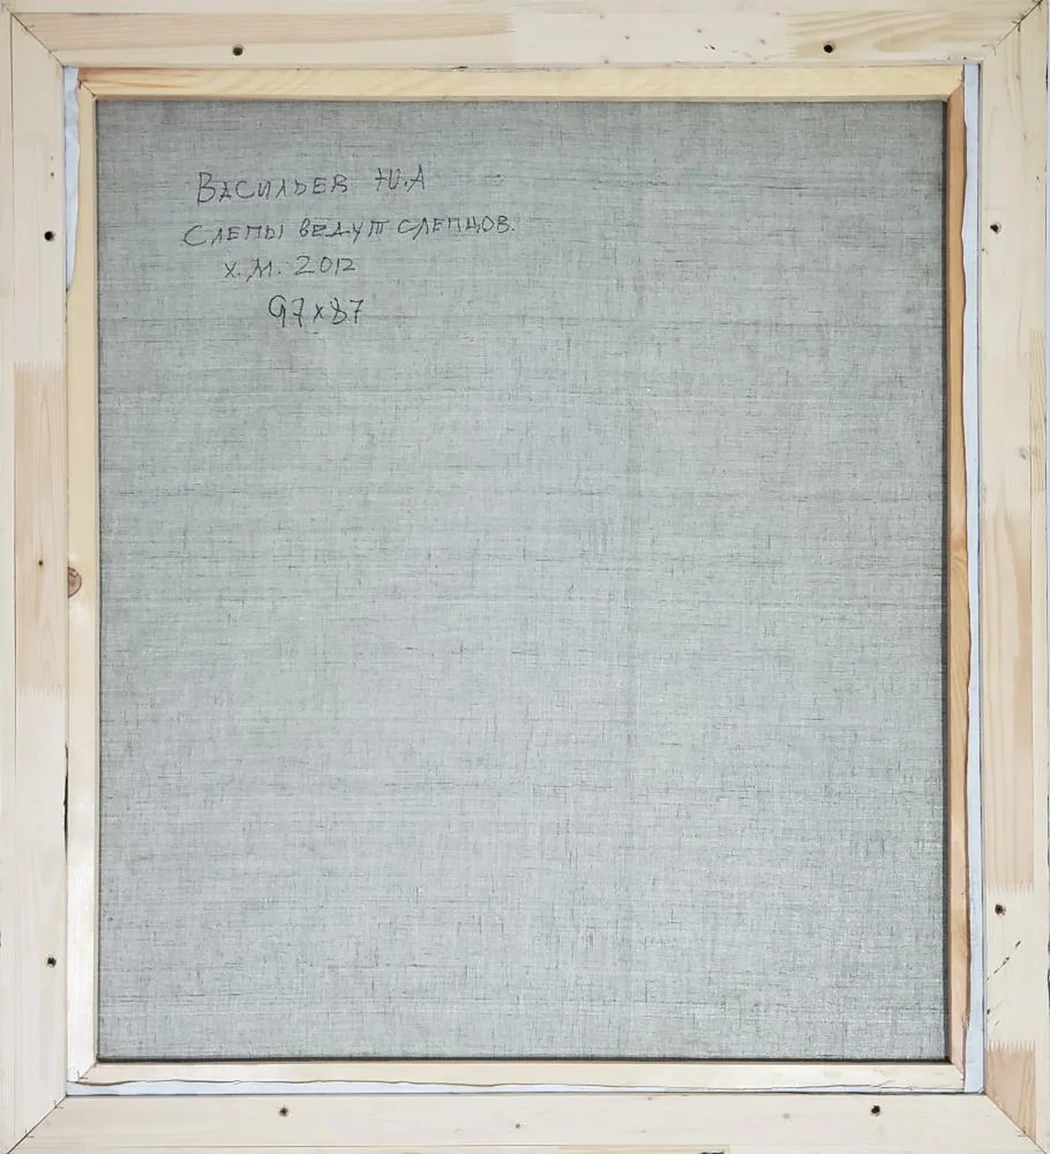 Васильев Ю.А
Слепы ведут слепцов.
х.м. 2012
97х87